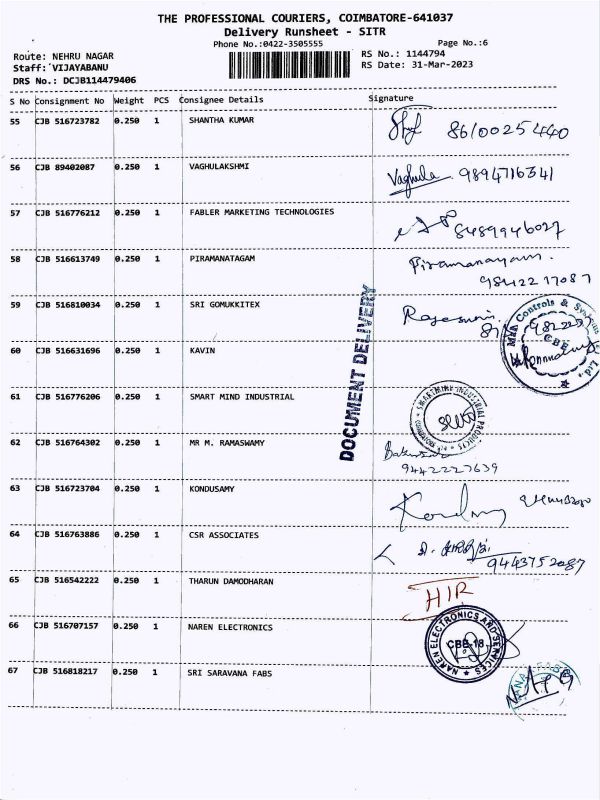 THE PROFESSIONAL COURIERS, COIMBATORE-641037
Delivery Runsheet - SITR
Phone No.:0422-3505555 Page No.:6
Route: NEHRU NAGAR RS No.: 1144794
Staff: VIJAYABANU RS Date: 31-Mar-2023
DRS No.: DCJB114479406
S No Consignment No Weight PCS Consignee Details Signature
55 CJB 516723782 0.250 1 SHANTHA KUMAR 8610025440
56 CJB 89402087 0.250 1 VAGHULAKSHMI Vaghula 9894716341
57 CJB 516776212 0.250 1 FABLER MARKETING TECHNOLOGIES 8489946027
58 CJB 516613749 0.250 1 PIRAMANATAGAM Piramanayagam.
9842217087
59 CJB 516810034 0.250 1 SRI GOMUKKITEX
60 CJB 516631696 0.250 1 KAVIN
DOCUMENT DELIVERY
Controls & Systems
CBE
61 CJB 516776206 0.250 1 SMART MIND INDUSTRIAL
SMARTMIND INDUSTRIAL PRODUCTS
62 CJB 516764302 0.250 1 MR M. RAMASWAMY
9442227639
63 CJB 516723704 0.250 1 KONDUSAMY
64 CJB 516763886 0.250 1 CSR ASSOCIATES
9443752087
65 CJB 516542222 0.250 1 THARUN DAMODHARAN HIR
66 CJB 516707157 0.250 1 NAREN ELECTRONICS
NAREN ELECTRONICS AND SERVICES
CBE-18
67 CJB 516818217 0.250 1 SRI SARAVANA FABS